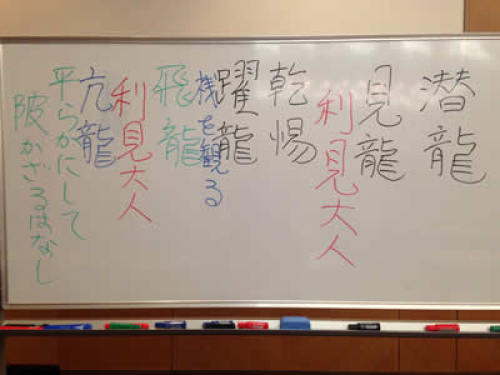 潜龍
見龍
利見大人
乾惕
躍龍
機を観る
飛龍
利見大人
亢龍
平らかにして
陂かざるはなし